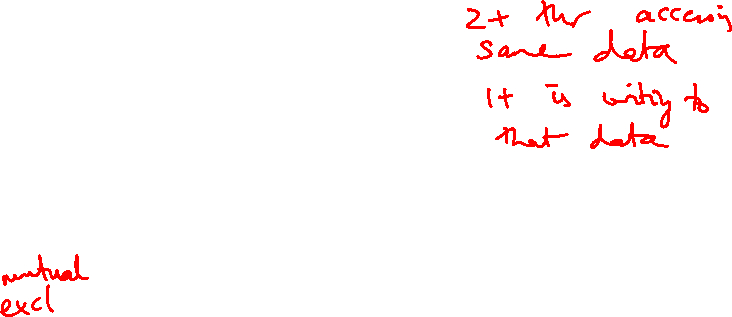 2+ thr accessing
same data
1+ is writing to
that data
mutual
excl